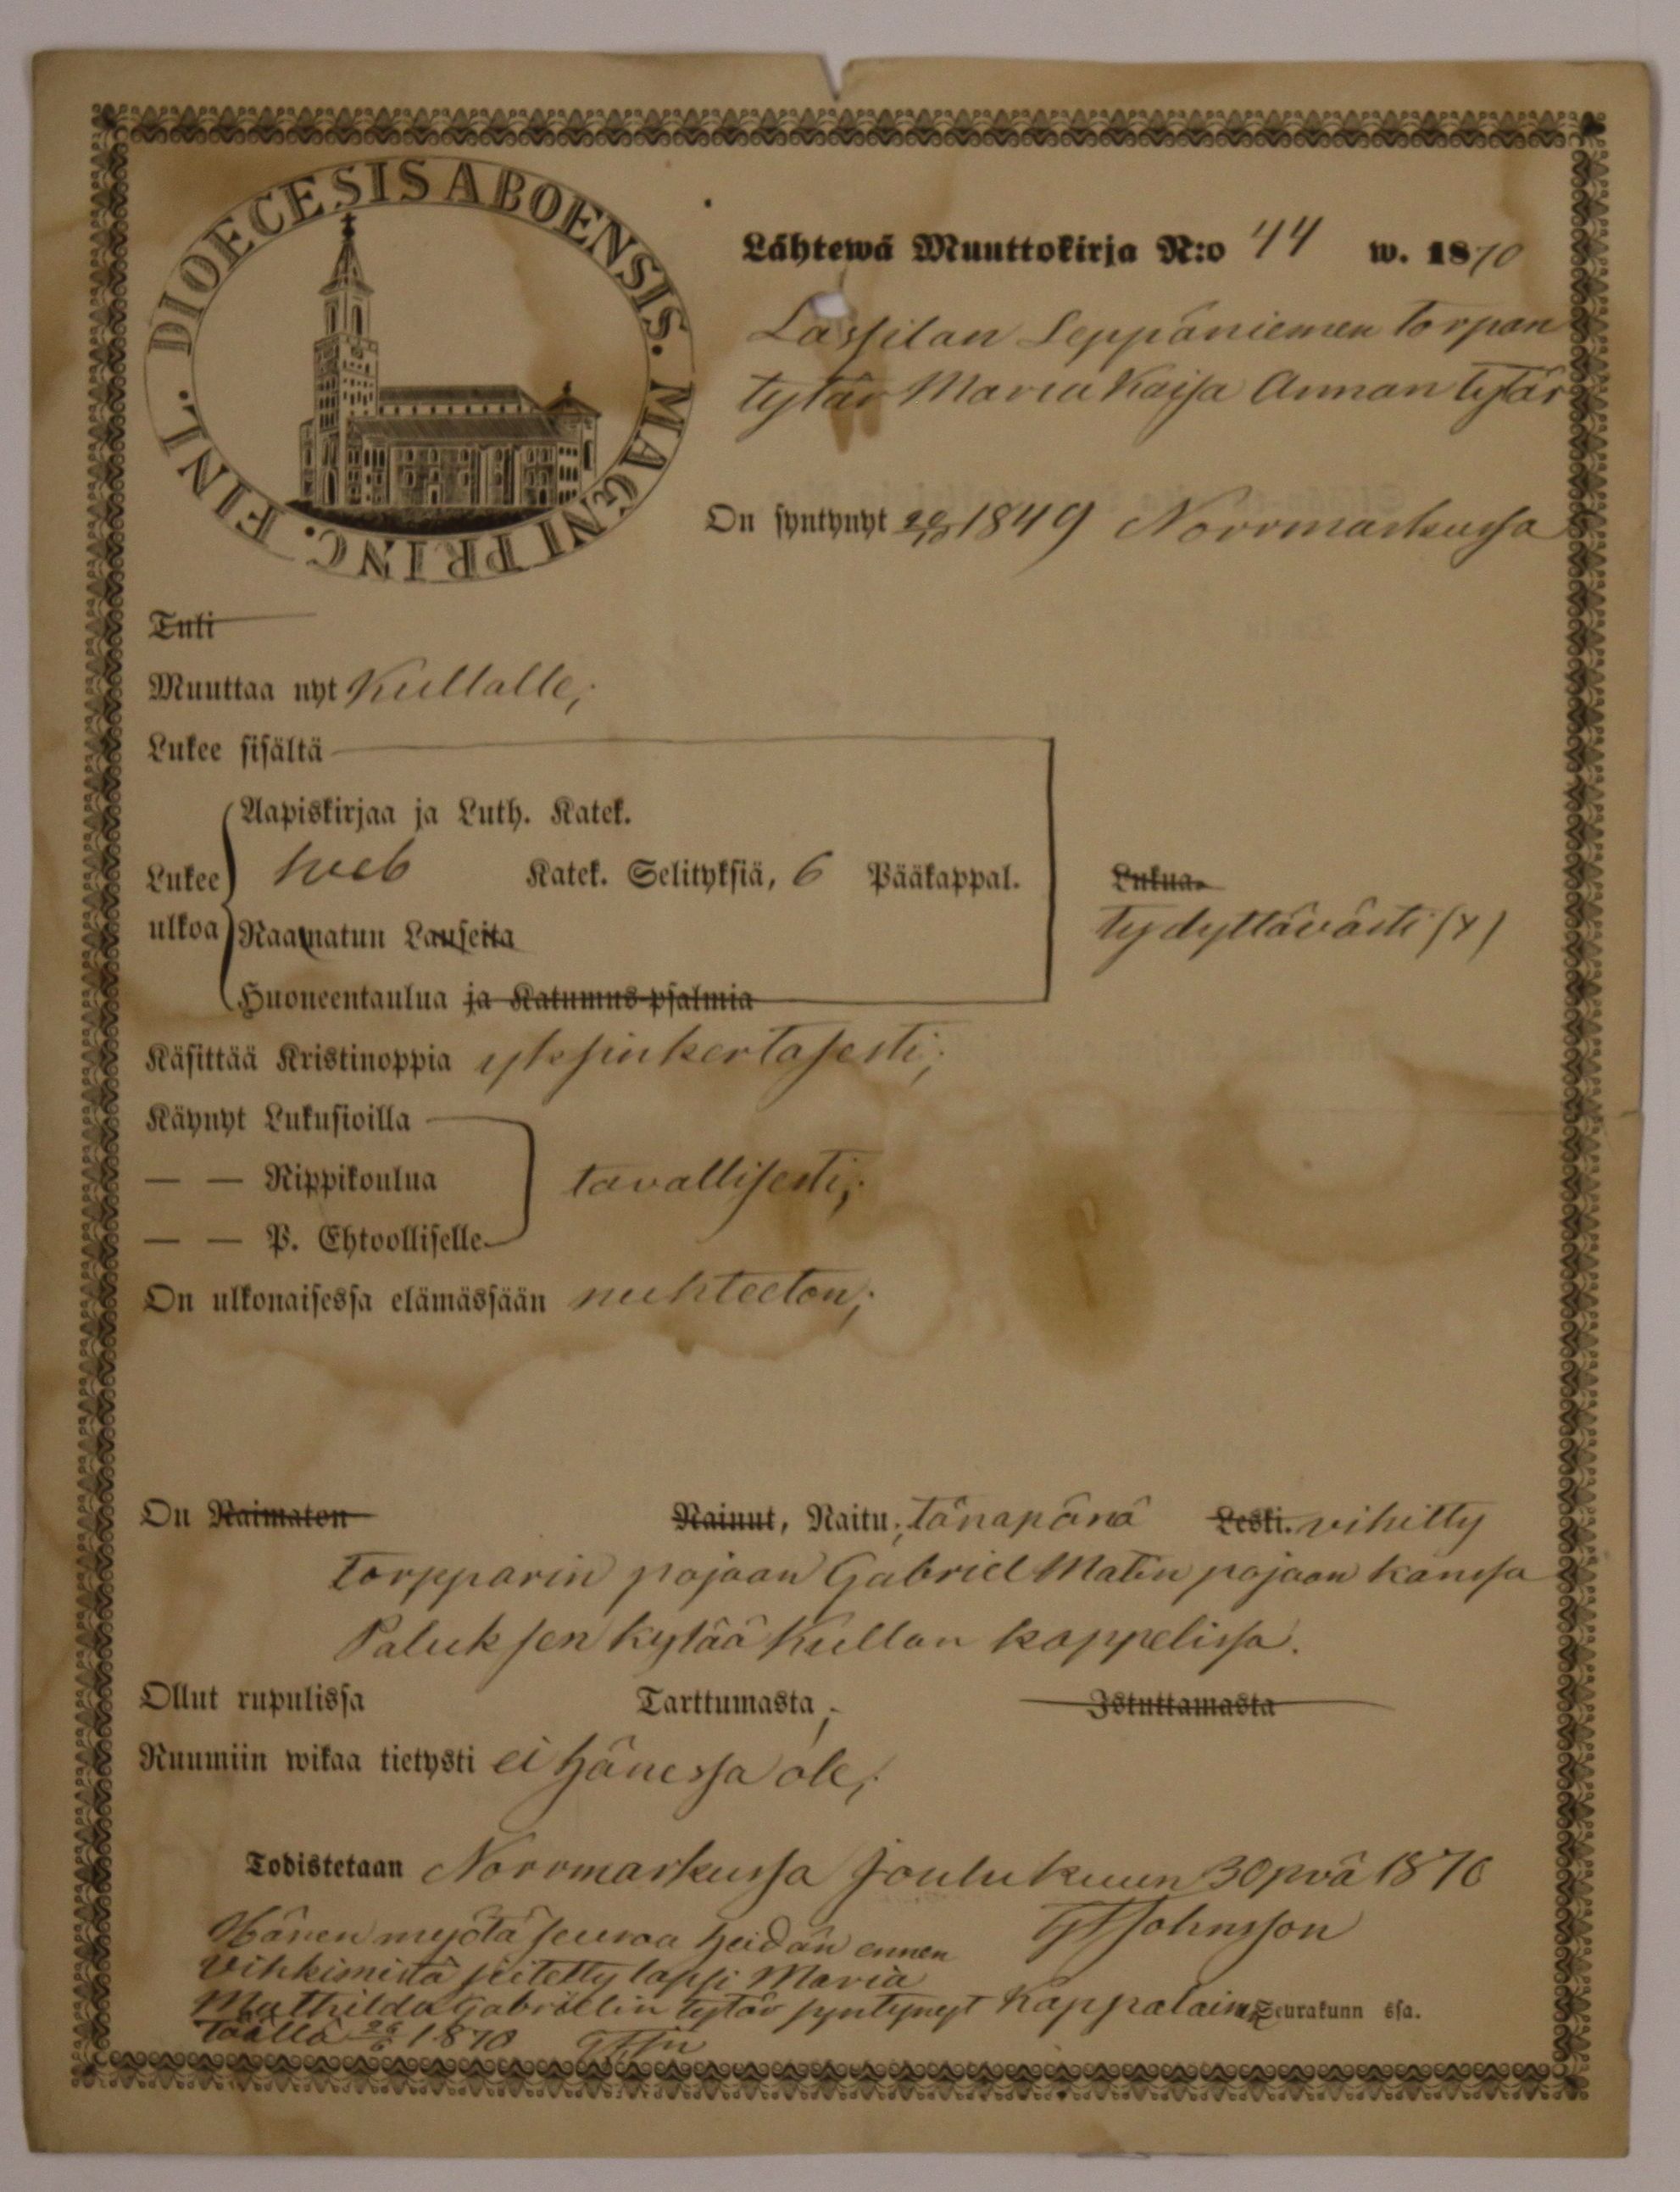 DIOECESIS ABOENSIS. MAGNI PRINC. FINL.
Lähtewä Muuttokirja N:o 44 w. 1870
Lassilan Leppäniemen torpan
tytär Maria Kaisa Annan tytär
On syntynyt 1849 Norrmarkussa
Tuli
Muuttaa nyt Kullalle;
Lukee sisältä
Aapiskirjaa ja Luth. Katek.
Lukee ulkoa Sveb Katek. Selityksiä, 6 Pääkappal. Lukua.
Raamatun Lauseita tydyttävästi (y)
Huoneentaulua ja Katumus-psalmia
Käsittää Kristinoppia yksinkertasesti;
Käynyt Lukusioilla
— — Rippikoulua tavallisesti;
— — P. Ehtoolliselle
On ulkonaisessa elämässään nuhteeton;
On Naimaton Nainut, Naitu; tänäpänä Leski. vihitty
torpparin pojaan Gabriel Matin pojaan kanssa
Paluksen kylää Kullan kappelissa.
Ollut rupulissa Tarttumasta; Istuttamasta
Ruumiin wikaa tietysti ei hänessä ole;
Todistetaan Norrmarkussa Joulukuun 30 pvä 1870
Hänen myötä seuraa heidän ennen Johnsson
vihkimistä siitetty lapsi Maria
Mathilda Gabriellin tytär syntynyt Kappalainen Seurakunn ssa.
täällä 26/6 1870